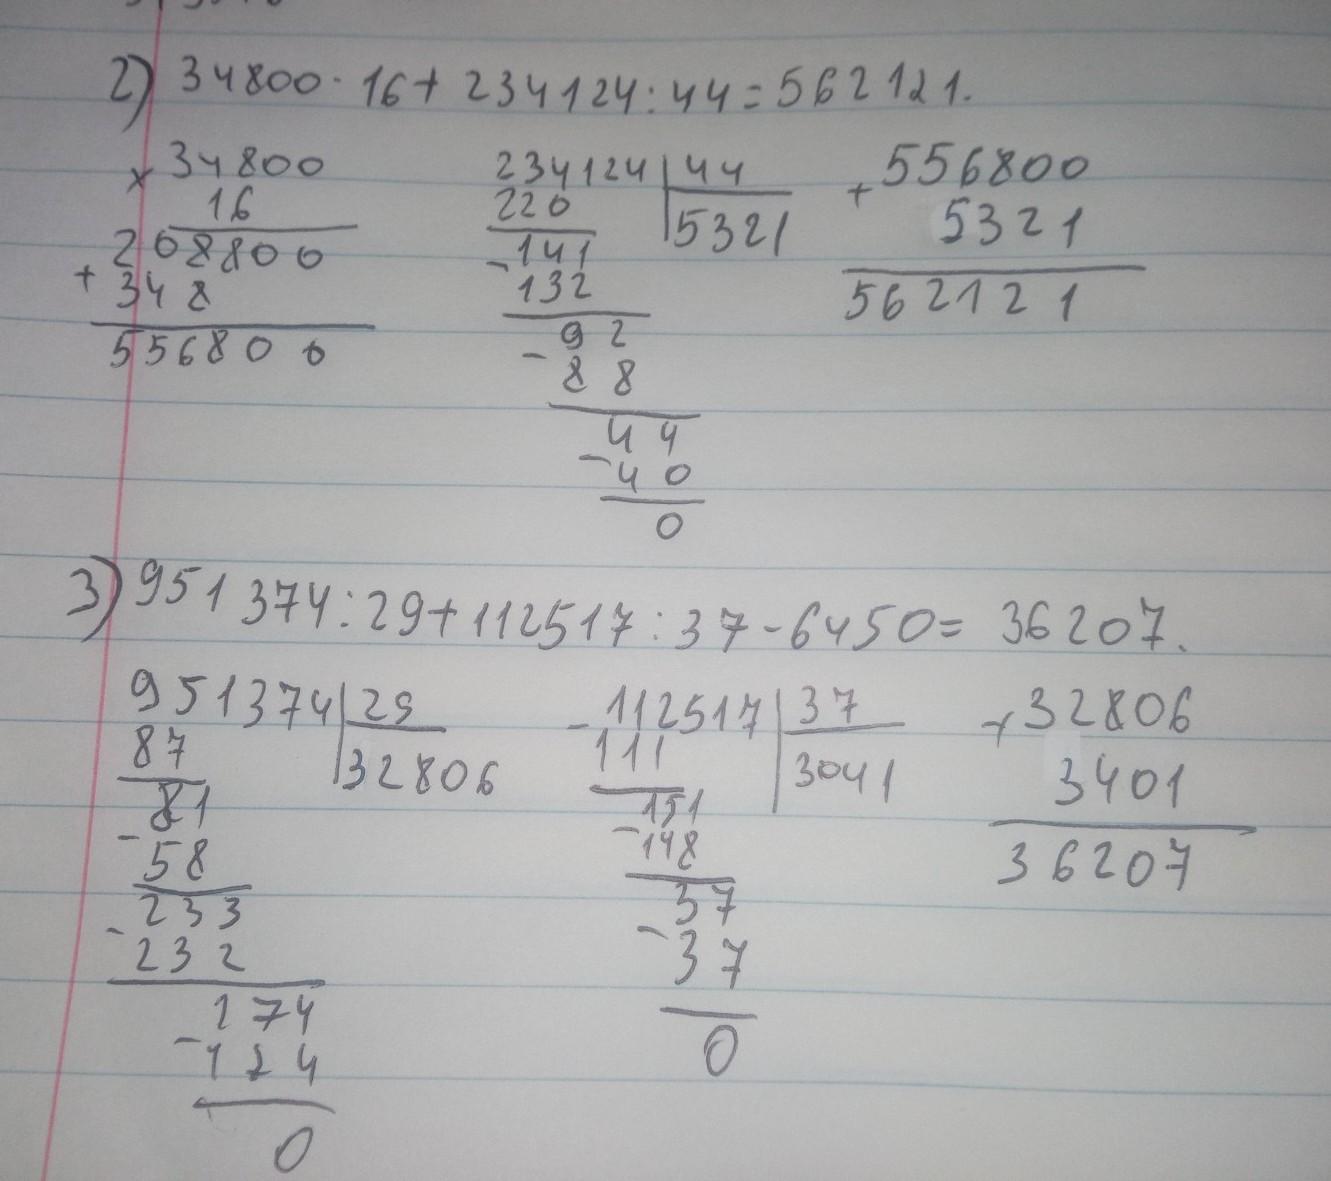 2) 34800 · 16 + 234124 : 44 = 562121.
× 34800
16
208800
+ 348
556800
234124 | 44
220
5321
- 141
132
- 92
88
- 44
40
0
+ 556800
5321
562121
3) 951374 : 29 + 112517 : 37 - 6450 = 36207.
951374 | 29
87
32806
- 81
58
- 233
232
- 174
174
0
- 112517 | 37
111
3041
- 151
148
- 37
37
0
+ 32806
3401
36207